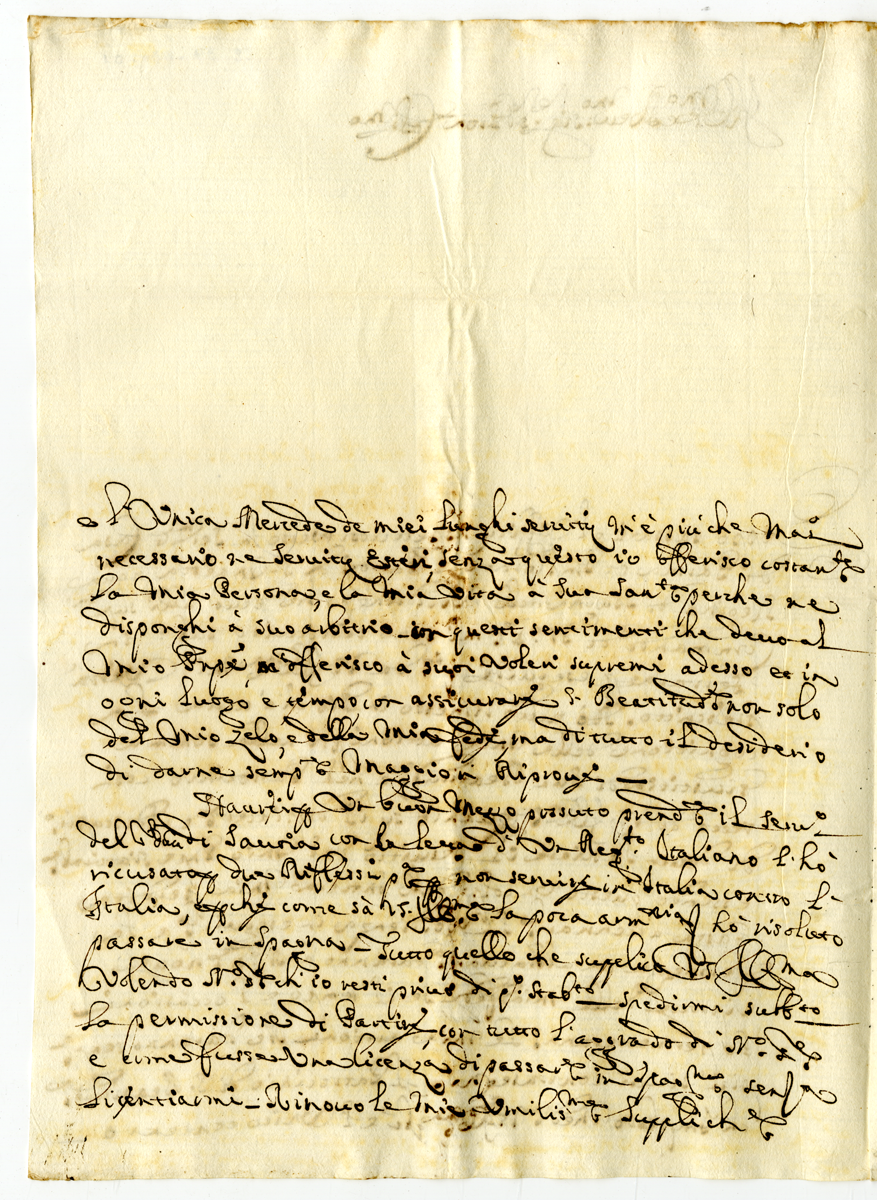 e l'Unica Mercede de miei lunghi servitij m'è più che Mai
necessario ne servitij Esteri, senza questo io offerisco costan.te
la mia Persona, e la mia vita à Sua San.tà perche ne
disponghi à suo arbitrio con questi sentimenti che devo al
Mio m'offerisco à suoi voleri supremi adesso et in
ogni luogo e tempo, con assicurare S. Beatitud.e non solo
del mio zelo, e della mia fede, ma di tutto il desiderio
di darne sempre Maggiori Riprove
Un buon Mezzo possuto prendere il serv.o
del di Savoia con la leva d'Un Reg.to Italiano l'hò
ricusato due Riflessi p.e non servire in Italia contro l'
Italia, come sà V.S. Ill.ma la poca hò risoluto
passare in Spagna Tutto quello che supplico VS Ill.ma
Volendo ch'io resti privo di spedirmi subito
la permissione di Partire, con tutto l'aggrado di
e come fusse Una licenza di passare in senza
licentiarmi Rinovo le mie Umilis.me Suppliche